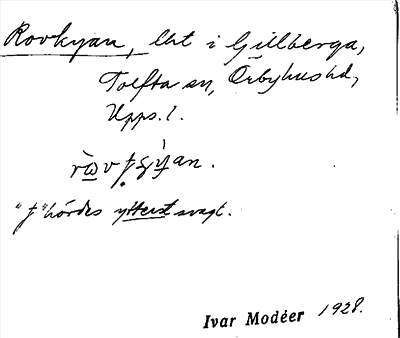 Rovkyan, lht i Gillberga,
Tolfta sn, Örbyhus hd,
Upps. l.
"ƭ" hördes ytterst svagt.
Ivar Modéer 1928.